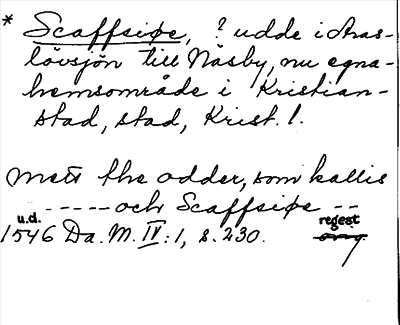 * Scaffsiøe, ? udde i Aras-
lövsjön till Näsby, nu egna-
hemsområde i Kristian-
stad, stad, Krist. l.
mett the odder, som kallis
----- och Scaffsiøe --
u.d. regest
1546 Da. M. IV: 1, s. 230. orig.